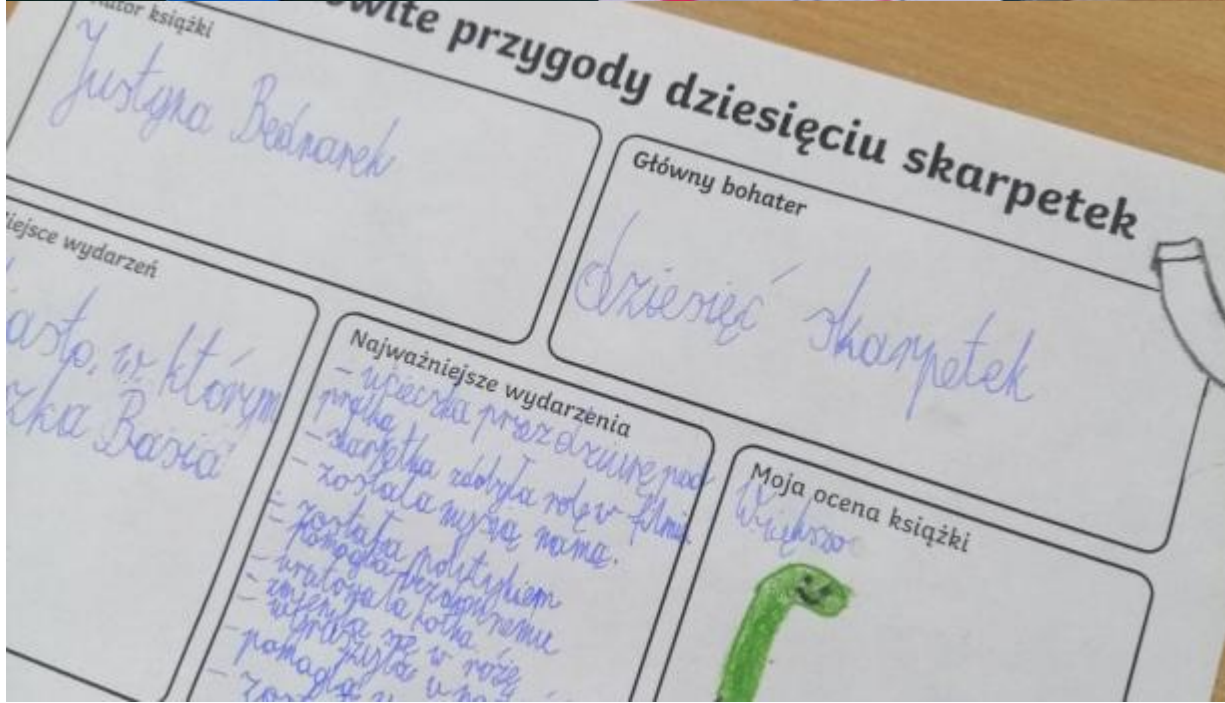 owite przygody dziesięciu skarpetek
Autor książki
Justyna Bednarek
Główny bohater
dziesięć skarpetek
iejsce wydarzeń
asto, w którym
zka Basia
Najważniejsze wydarzenia
- ucieczka przez dziurę pod
pralką
- skarpetka zdobyła rolę w filmie
- została myszą mamą.
- została politykiem
- pomogła
- uratowała kotka
- zmieniła się w różę
-
pomogła
Moja ocena książki